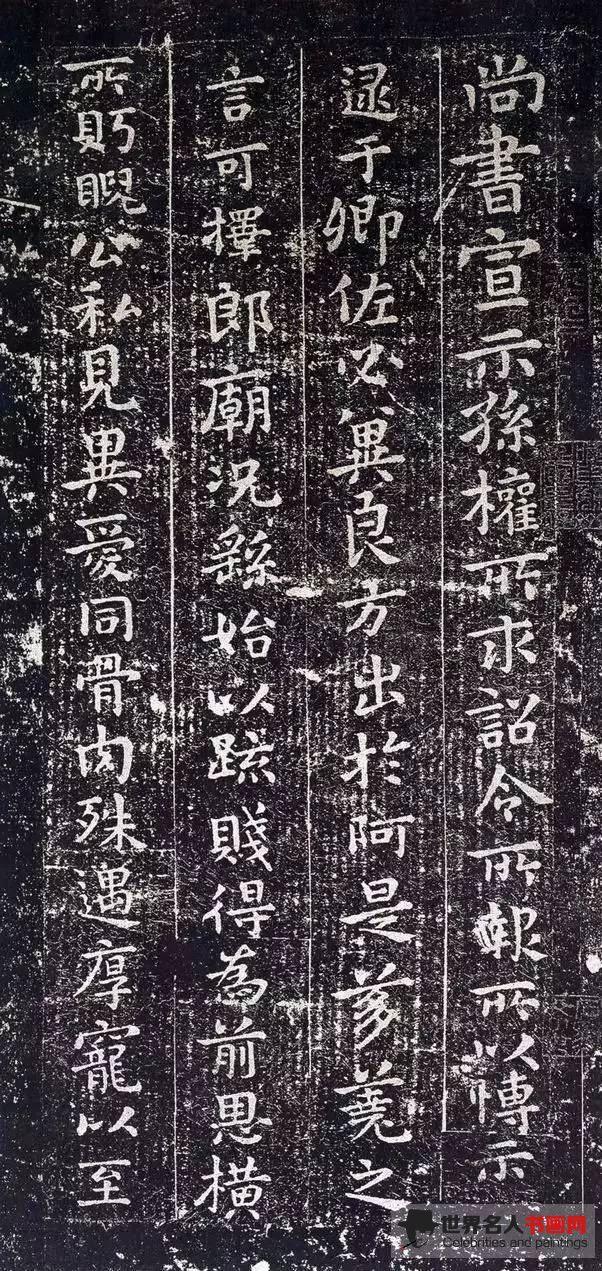 尚書宣示孫權所求詔令所報所以博示
逮于卿佐必冀良方出於阿是芻蕘之
言可擇郎廟況繇始以疏賤得為前恩橫
所盱睨公私見異愛同骨肉殊遇厚寵以至
世界名人书画网
Celebrities and paintings